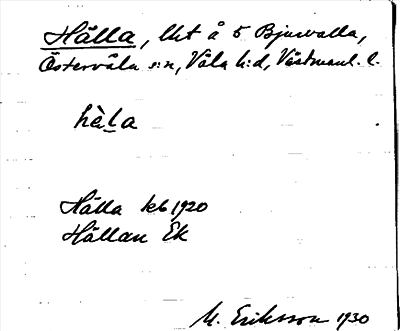 Hälla, lht å 5 Bjurvalla,
Östervåla s:n, Våla h:d, Västmanl. l.
hèla
Hälla kb 1920
Hällan Ek
M. Eriksson 1930